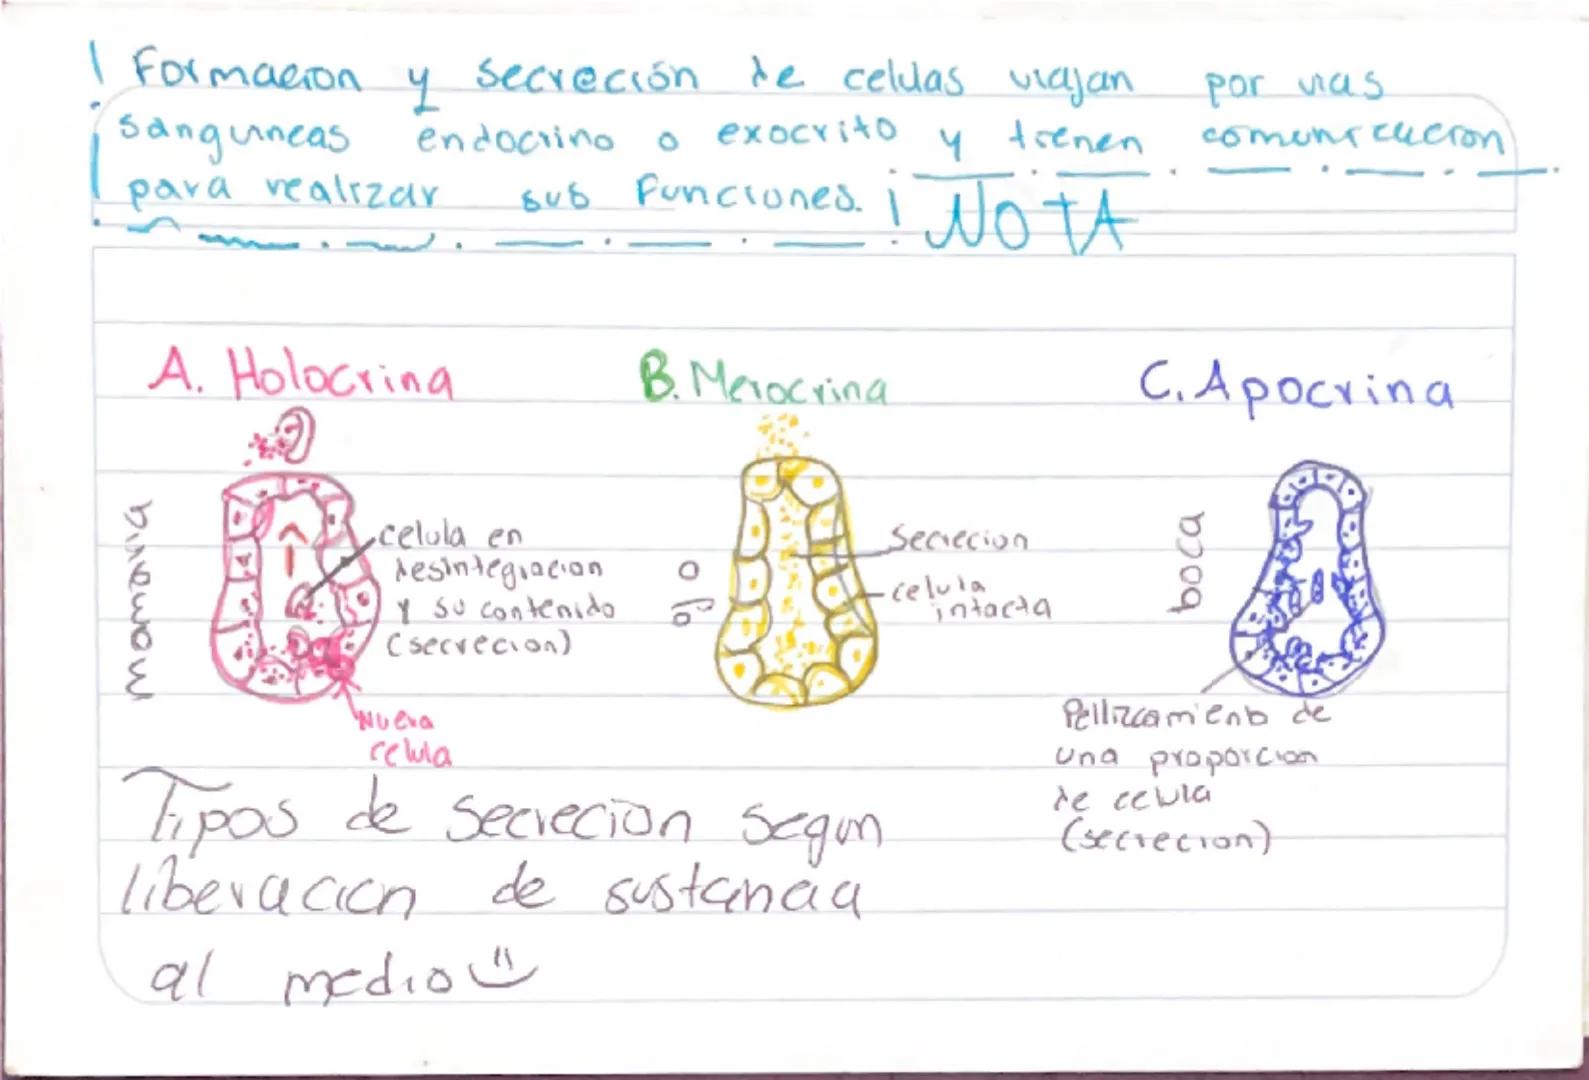 Formacion y secreción de celulas viajan por vias
sanguineas endocrino o exocrito y tienen comunicacion
para realizar sus funciones.
NOTA
A. Holocrina
B. Merocrina
C. Apocrina
mamaria
celula en
desintegracion
y su contenido
(secrecion)
Nueva
celula
oido
Secrecion
celula
intacta
boca
Pellizcamiento de
una proporcion
de celula
(secrecion)
Tipos de secrecion segun
liberacion de sustancia
al medio